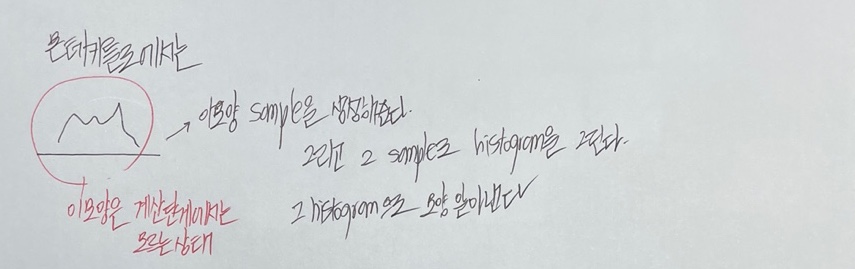 몬테카를로에서는
이모양 sample을 생성해준다.
그리고 그 sample로 histogram을 그린다.
그 histogram으로 모양 알아낸다
이모양은 계산단계에서는
모르는상태